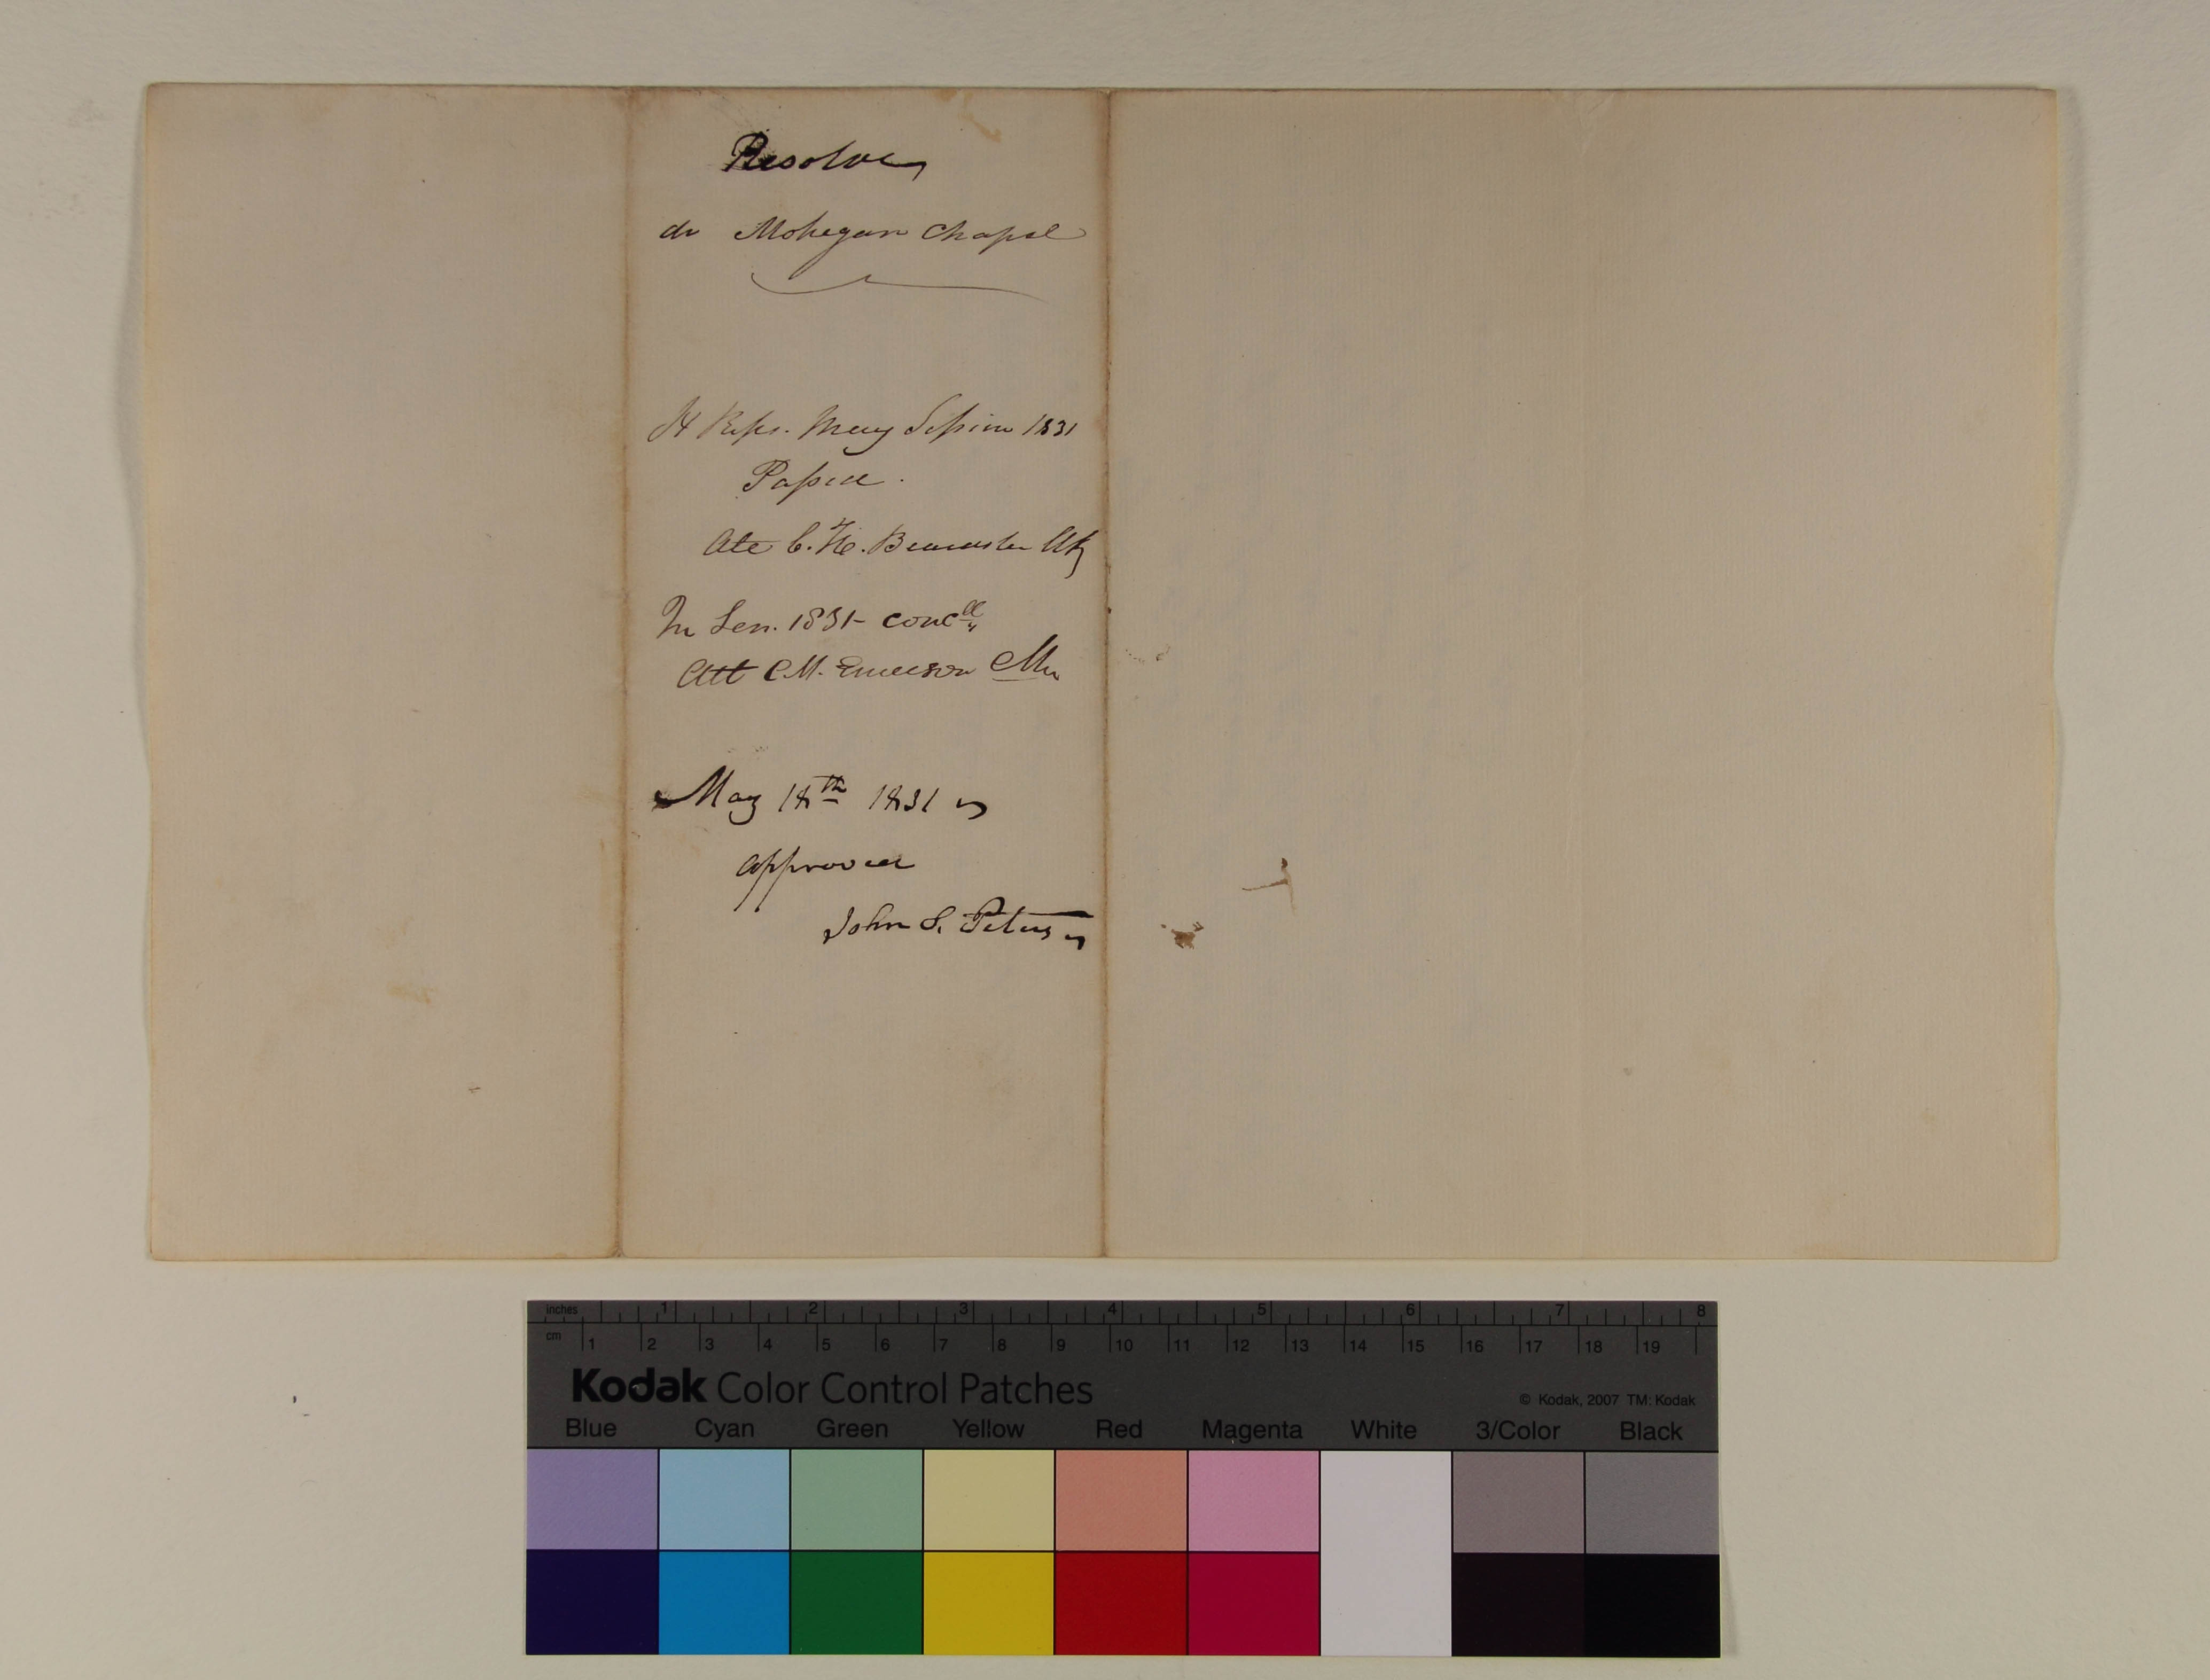 Resolve
de Mohegan Chapel
H Reps. May Session 1831
Passed.
Att C. H. Brewster Clk
In Sen. 1831- conc
Att C.M. Emerson Clk
May 18th 1831
approved
John S. Peters
inches 1 2 3 4 5 6 7 8
cm 1 2 3 4 5 6 7 8 9 10 11 12 13 14 15 16 17 18 19
Kodak Color Control Patches
© Kodak, 2007 TM: Kodak
Blue Cyan Green Yellow Red Magenta White 3/Color Black